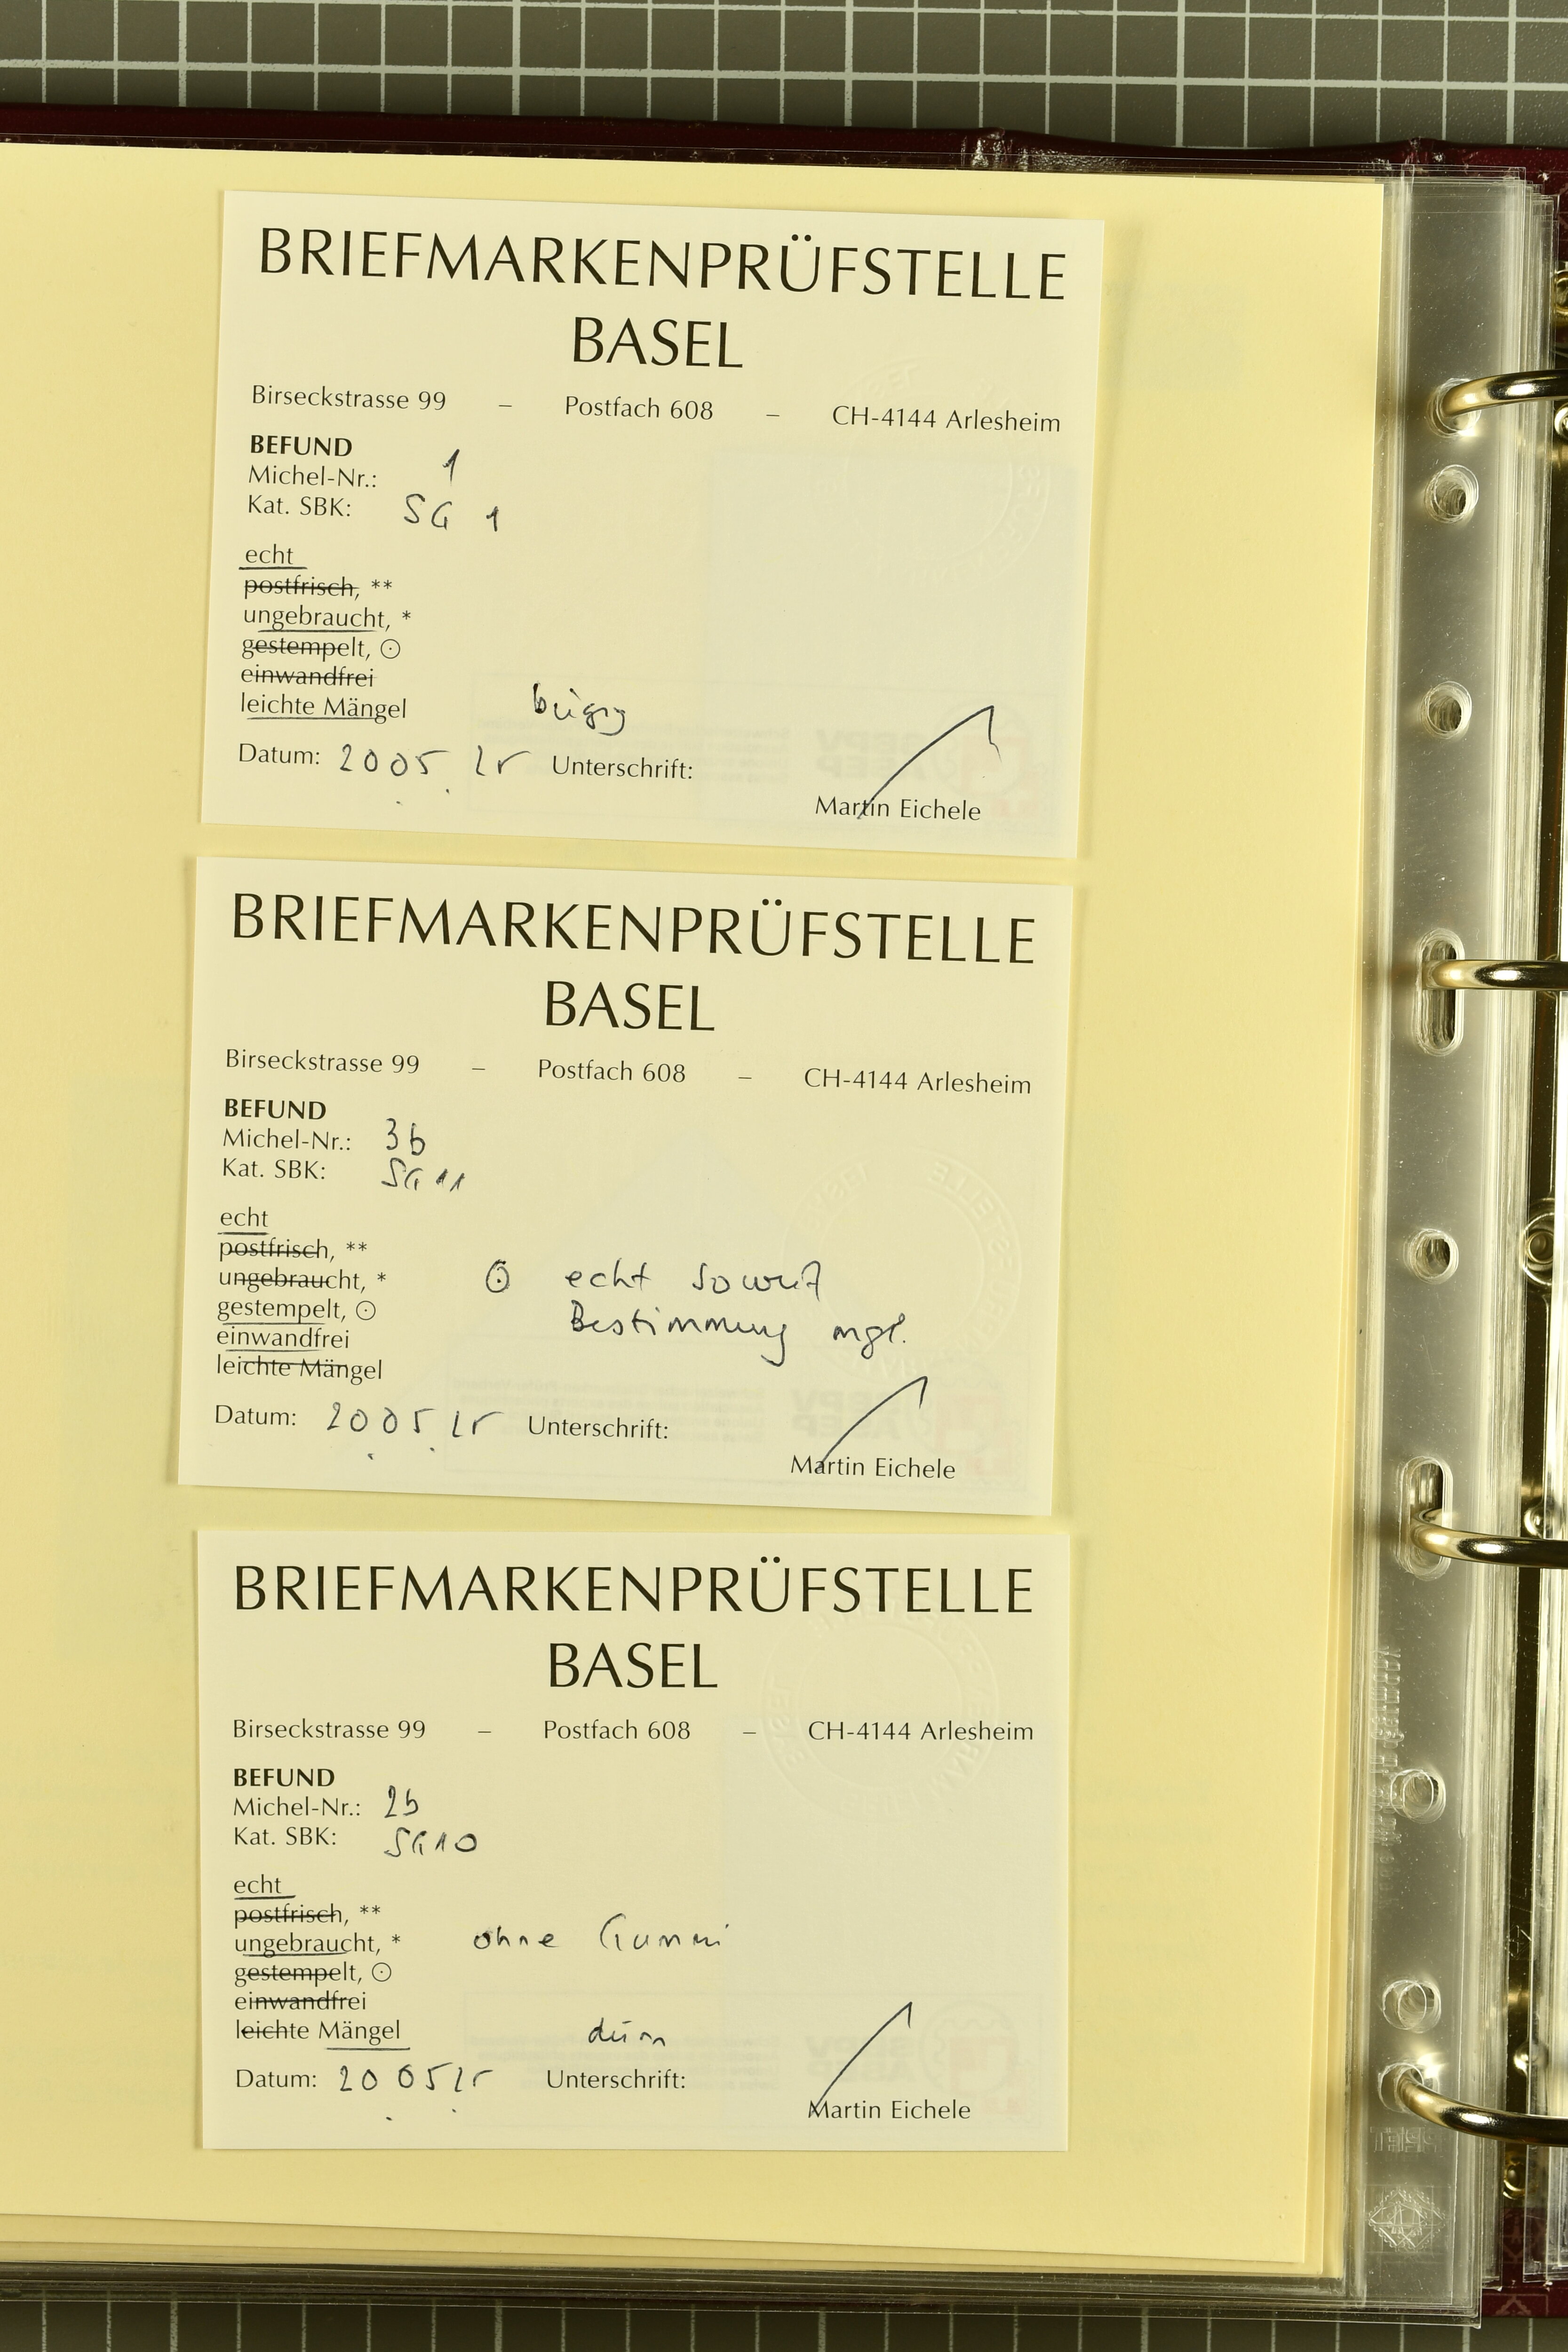 BRIEFMARKENPRÜFSTELLE
BASEL
Birseckstrasse 99 – Postfach 608 – CH-4144 Arlesheim
BEFUND
Michel-Nr.: 1
Kat. SBK: SG 1
echt
postfrisch, **
ungebraucht, *
gestempelt, ⊙
einwandfrei
leichte Mängel bügig
Datum: 2005 Unterschrift:
Martin Eichele
BRIEFMARKENPRÜFSTELLE
BASEL
Birseckstrasse 99 – Postfach 608 – CH-4144 Arlesheim
BEFUND
Michel-Nr.: 3b
Kat. SBK: SG 11
echt
postfrisch, **
ungebraucht, * ⊙ echt soweit
gestempelt, ⊙ Bestimmung mgl.
einwandfrei
leichte Mängel
Datum: 2005 Unterschrift:
Martin Eichele
BRIEFMARKENPRÜFSTELLE
BASEL
Birseckstrasse 99 – Postfach 608 – CH-4144 Arlesheim
BEFUND
Michel-Nr.: 2b
Kat. SBK: SG 10
echt
postfrisch, **
ungebraucht, * ohne Gummi
gestempelt, ⊙
einwandfrei
leichte Mängel dünn
Datum: 2005 Unterschrift:
Martin Eichele